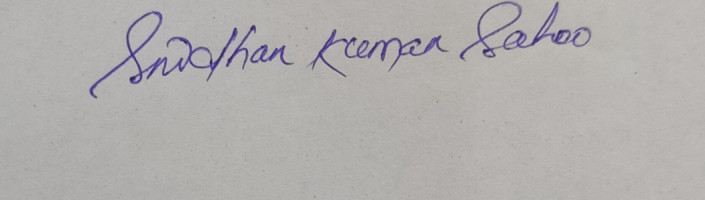 Sridhar Kumar Sahoo